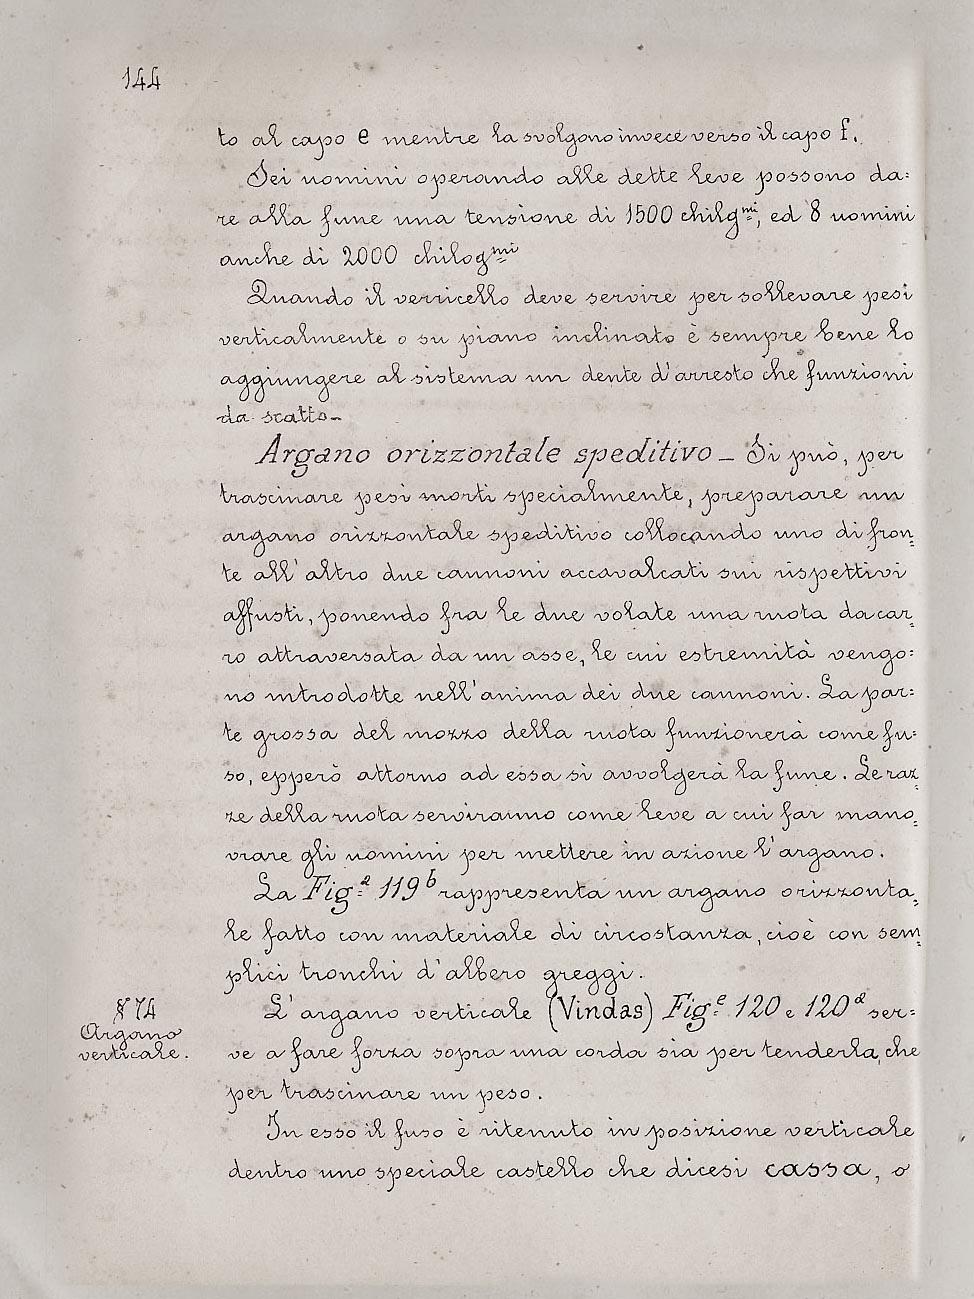 144
to al capo e mentre la svolgono invece verso il capo f.
Sei uomini operando alle dette leve possono da=
re alla fune una tensione di 1500 chilg.mi, ed 8 uomini
anche di 2000 chilogmi
Quando il verricello deve servire per sollevare pesi
verticalmente o su piano inclinato è sempre bene lo
aggiungere al sistema un dente d'arresto che funzioni
da scatto_
Argano orizzontale speditivo _ Si può, per
trascinare pesi morti specialmente, preparare un
argano orizzontale speditivo collocando uno di fron=
te all'altro due cannoni accavalcati sui rispettivi
affusti, ponendo fra le due volate una ruota da car=
ro attraversata da un asse, le cui estremità vengo=
no introdotte nell'anima dei due cannoni. La par=
te grossa del mozzo della ruota funzionerà come fu=
so, epperò attorno ad essa si avvolgerà la fune. Le raz=
ze della ruota serviranno come leve a cui far mano=
vrare gli uomini per mettere in azione l'argano.
La Fig.a 119b rappresenta un argano orizzonta=
le fatto con materiale di circostanza, cioè con sem=
plici tronchi d'albero greggi.
§ 74
Argano
verticale.
L'argano verticale (Vindas) Fig.e 120 e 120a ser=
ve a fare forza sopra una corda sia per tenderla, che
per trascinare un peso.
In esso il fuso è ritenuto in posizione verticale
dentro uno speciale castello che dicesi cassa, o